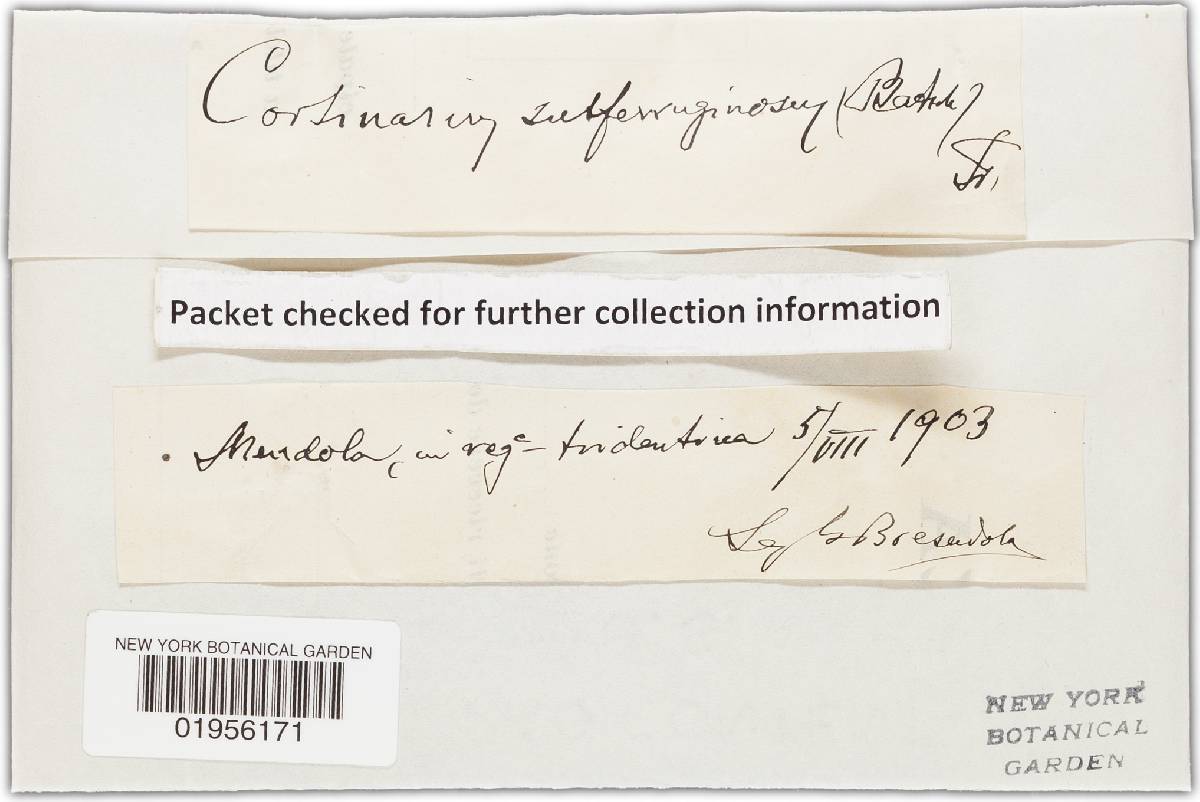 Cortinarius subferruginosus (Batsch)
Fr.
Packet checked for further collection information
Mendola, in reg.e tridentina 5/VIII 1903
Leg G Bresadola
NEW YORK BOTANICAL GARDEN
01956171
NEW YORK
BOTANICAL
GARDEN